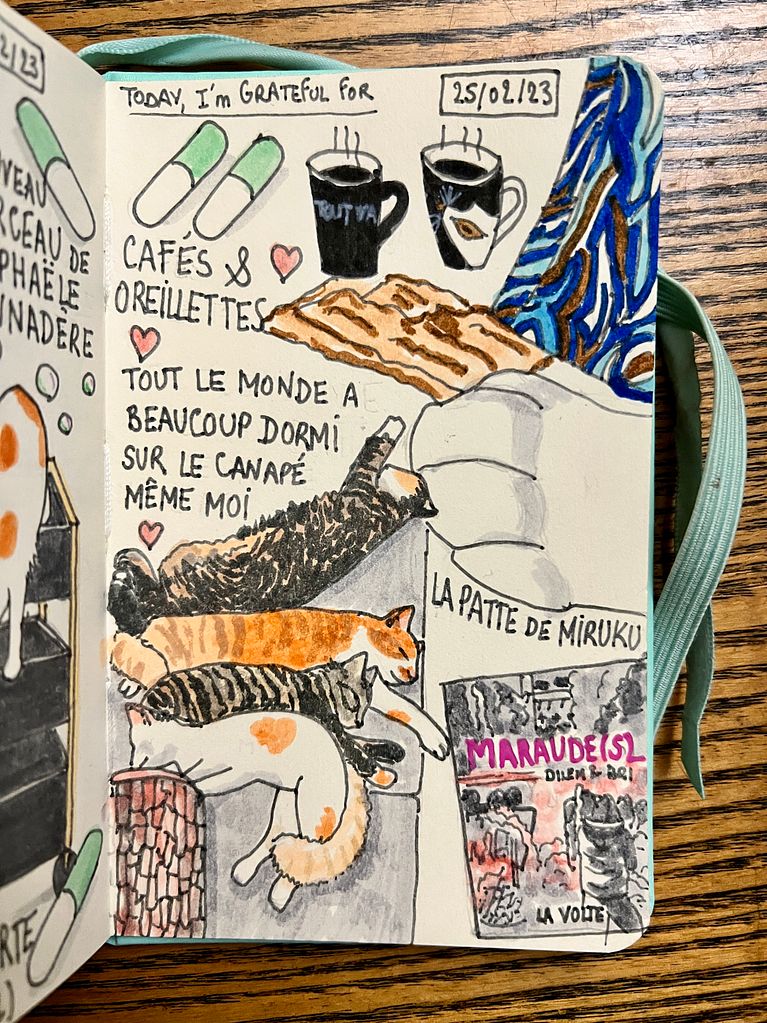 2/23
DE
TODAY, I'm GRATEFUL FOR
25/02/23
TOUT VA
CAFÉS &
OREILLETTES
TOUT LE MONDE A
BEAUCOUP DORMI
SUR LE CANAPÉ
MÊME MOI
LA PATTE DE MIRUKU
MARAUDE(S)
DILEM & BRI
LA VOLTE